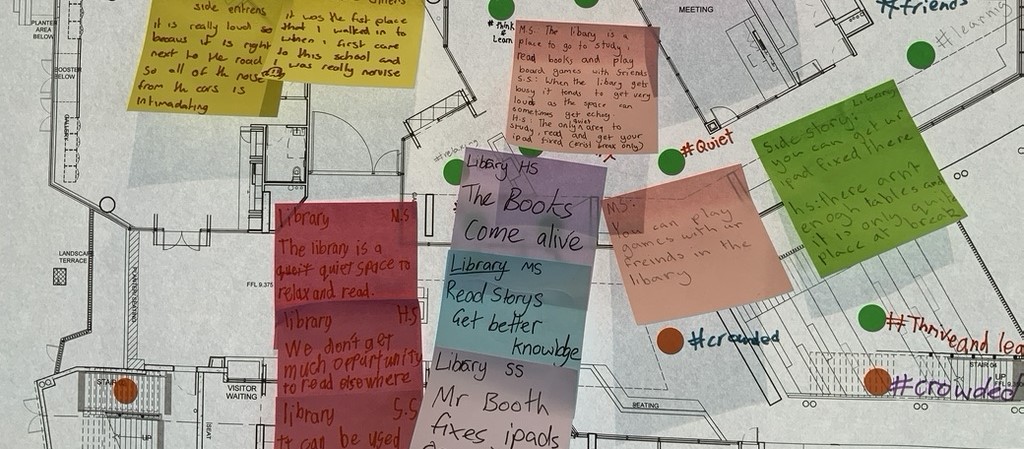 side entrens
it is really loud so
becaus it is right
next to the road
so all of the noise
from the cars is
intimadating
it was the fist place
that I walked in to
when i first care
to this school and
I was really norvise
PLANTER
AREA
BELOW
BOOSTER
BELOW
GALLERY
#think
& Learn
M.S: The libary is a
place to go to study,
read books and play
board games with friends
S.S: When the libary gets
busy it tends to get very
loud as the space can
sometimes get echoy.
H.S: The only quiet area to
study, read and get your
ipad fixed (erist break only)
MEETING
#friends
#learnig
#Quiet
side story: Liberery
you can get ur
ipad fixed there
hs: there arnt
enogh tables and
it is only quite
place at break
#relaxing
Library HS
The Books
Come alive
M.S:
You can play
games with ur
freinds in the
libary
library M.S
The library is a
quiet space to
relax and read.
Library MS
Read Storys
Get better
knowldge
LANDSCAPE
TERRACE
FFL 9.375
library H.S
We don't get
much opportunity
to read elsewhere
##Thrive and lea
#crowded
STAIR 04
UP
#crowded
Library SS
Mr Booth
fixes ipads
STAIR
UP
VISITOR
WAITING
SEAT
SEATING
library S.S
It can be used